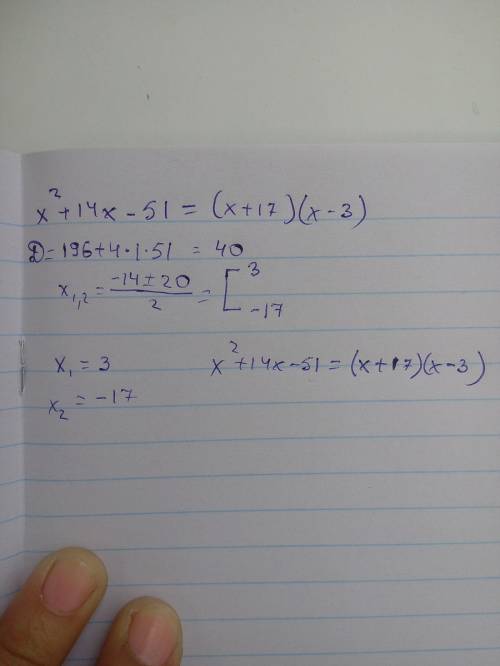 x² + 14x - 51 = (x+17)(x-3)
D = 196+4·1·51 = 40
x₁,₂ = (-14 ± 20)/2 = [ 3 -17
x₁ = 3 x² + 14x - 51 = (x+17)(x-3)
x₂ = -17